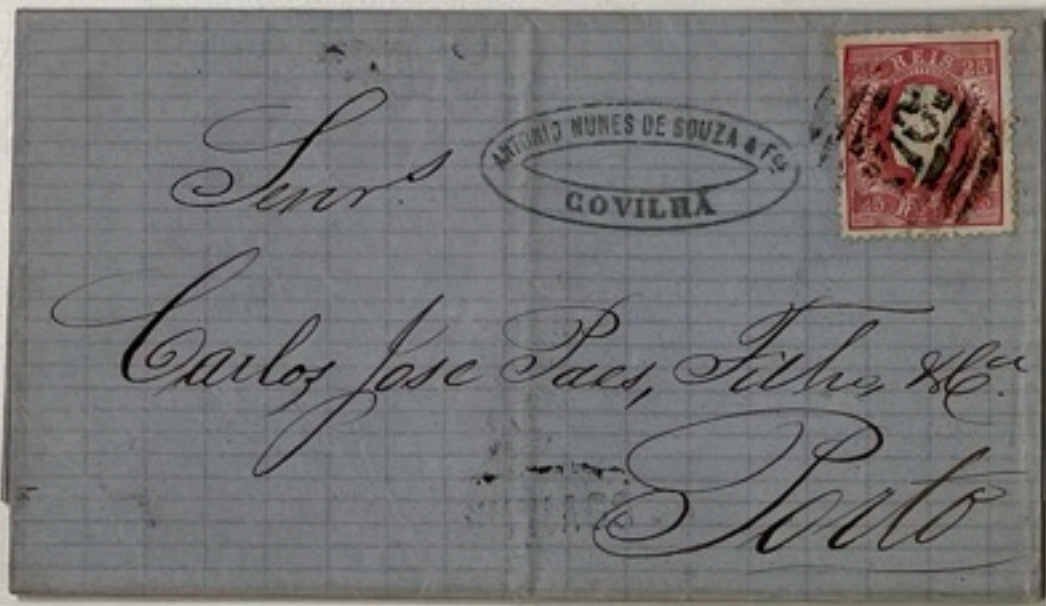 REIS 25
ANTONIO NUNES DE SOUZA & Fos
COVILHÃ
Senrs
Carlos Jose Paes, Filho, & Ca.
Porto